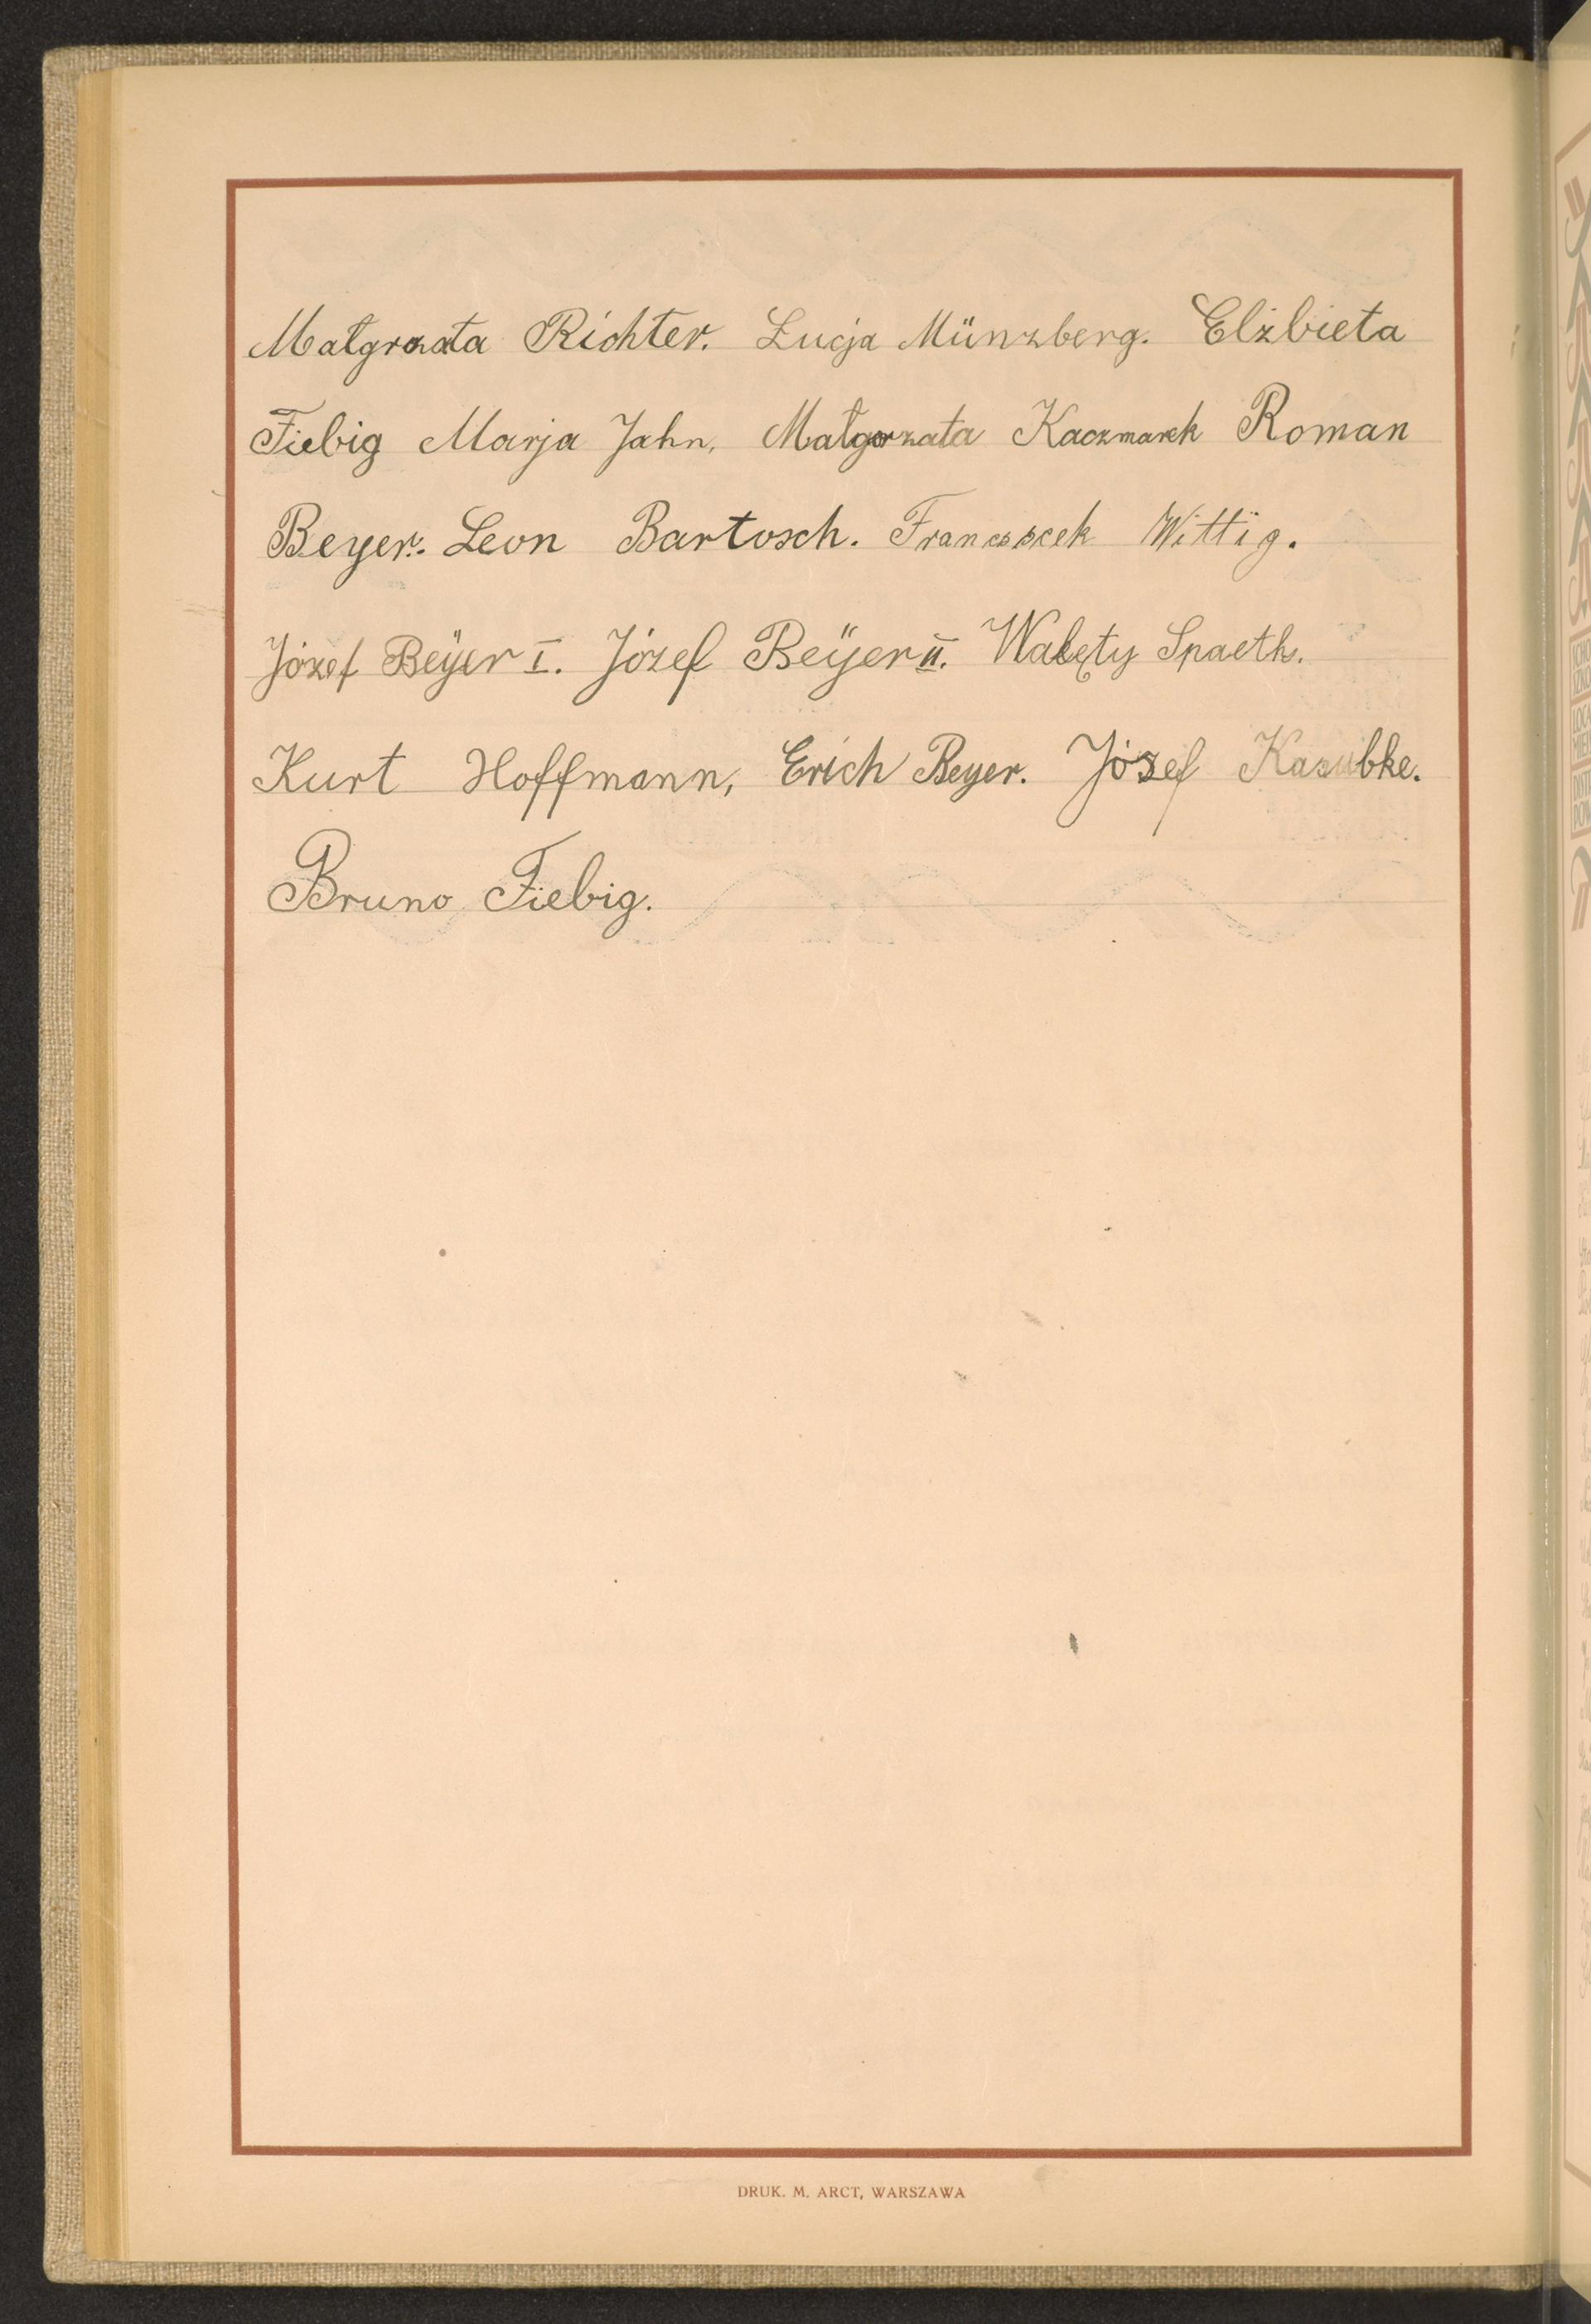 Małgrzata Richter. Lucja Münzberg. Elżbieta
Fiebig Marja Jahn, Małgorzata Kaczmarek Roman
Beyer. Leon Bartosch. Wittig.
Józef Beÿer I. Józef Beÿer II. Walęty Spaeth.
Kurt Hoffmann, Erich Beyer. Józef Kasubke.
Bruno Fiebig.
DRUK. M. ARCT, WARSZAWA